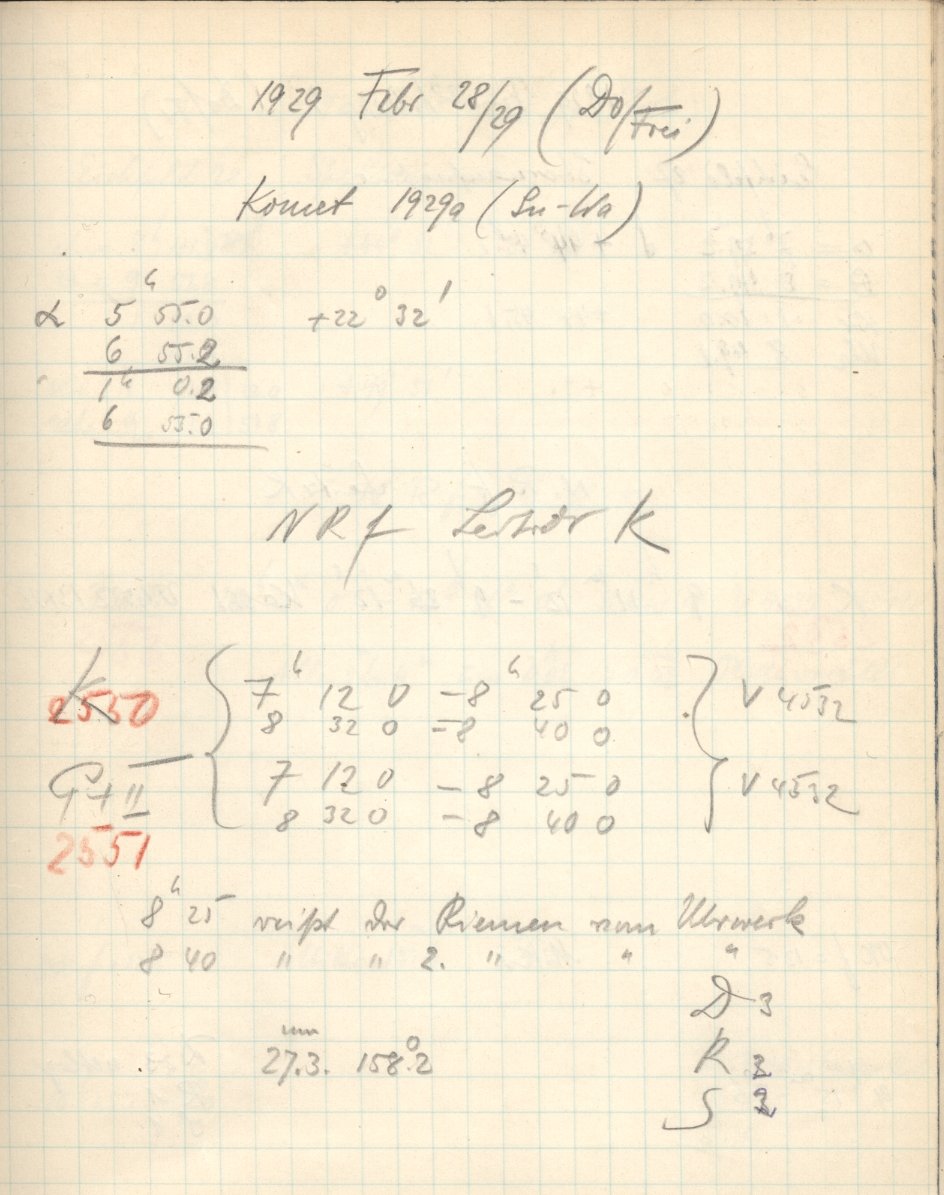 1929 Febr 28/29 (Do/Frei)
Komet 1929a (Sn-Wa)
α 5ʰ 55.0 +22° 32'
6 55.2
1ʰ 0.2
6 55.0
NRf K
K 7ʰ 12 0 – 8ʰ 25 0 V 4532
2550 8 32 0 = 8 40 0
G+II 7 12 0 – 8 25 0 V 4532
2551 8 32 0 – 8 40 0
8ʰ 25 reißt der Riemen vom Uhrwerk
8 40 " " 2. " " "
D 3
mm
27.3. 158°.2 R 3
S